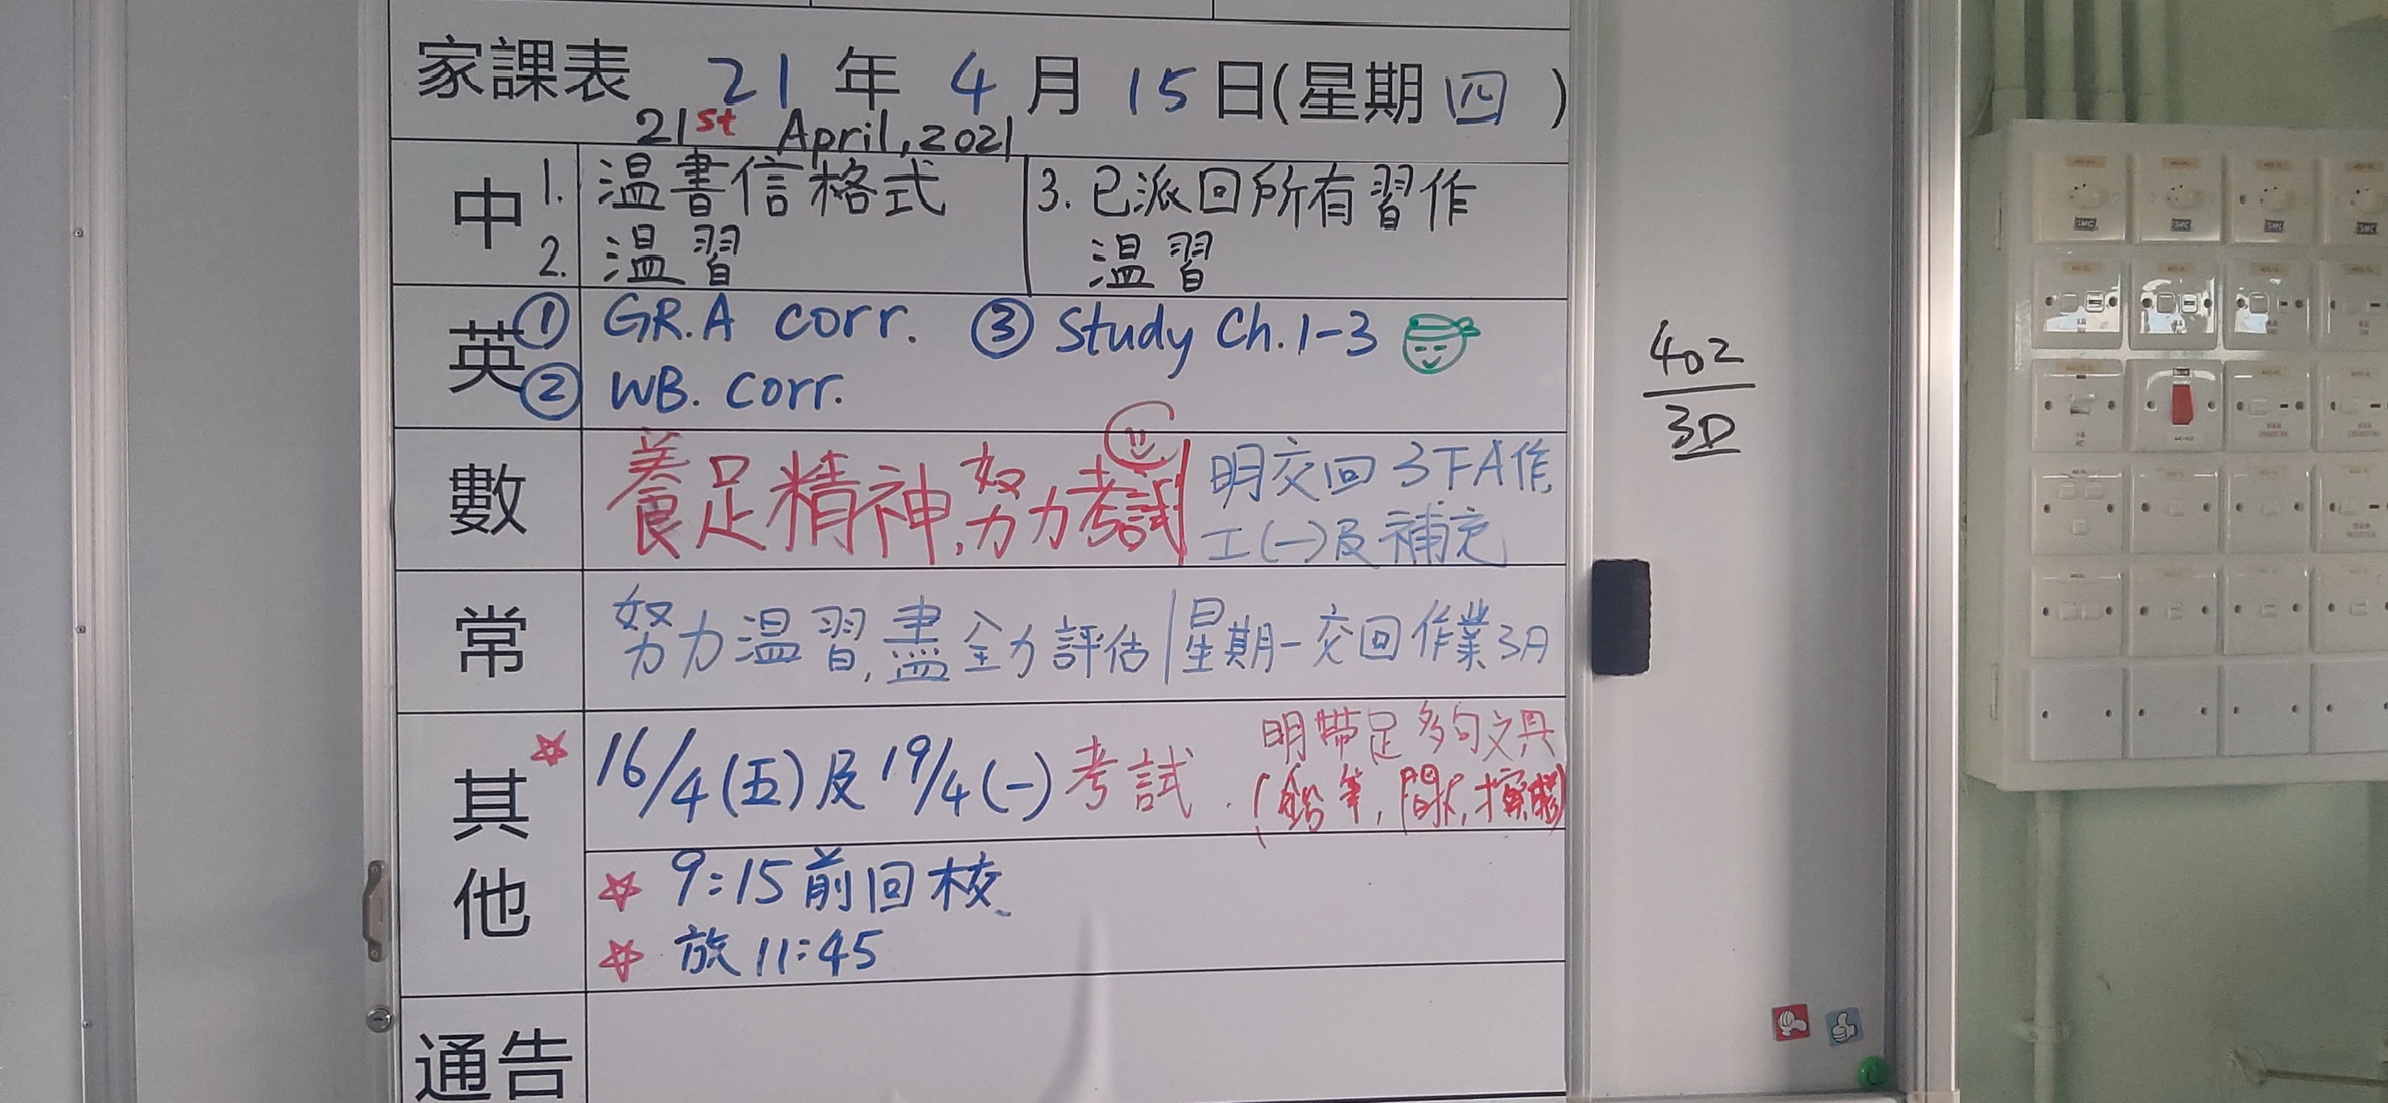 家課表 21 年 4 月 15 日(星期 四 )
21st April, 2021
中
1. 温書信格式
2. 温習
3. 已派回所有習作
温習
英
① GR.A corr. ③ Study Ch.1-3
② WB. corr.
數
養足精神,努力考試
明交回3下A作
工(一)及補充
常
努力温習,盡全力評估
星期一交回作業3月
其他
16/4(五)及19/4(一)考試.
明帶足多句文具
(鉛筆,間尺,擦膠)
9:15前回校
放11:45
通告
402
3D